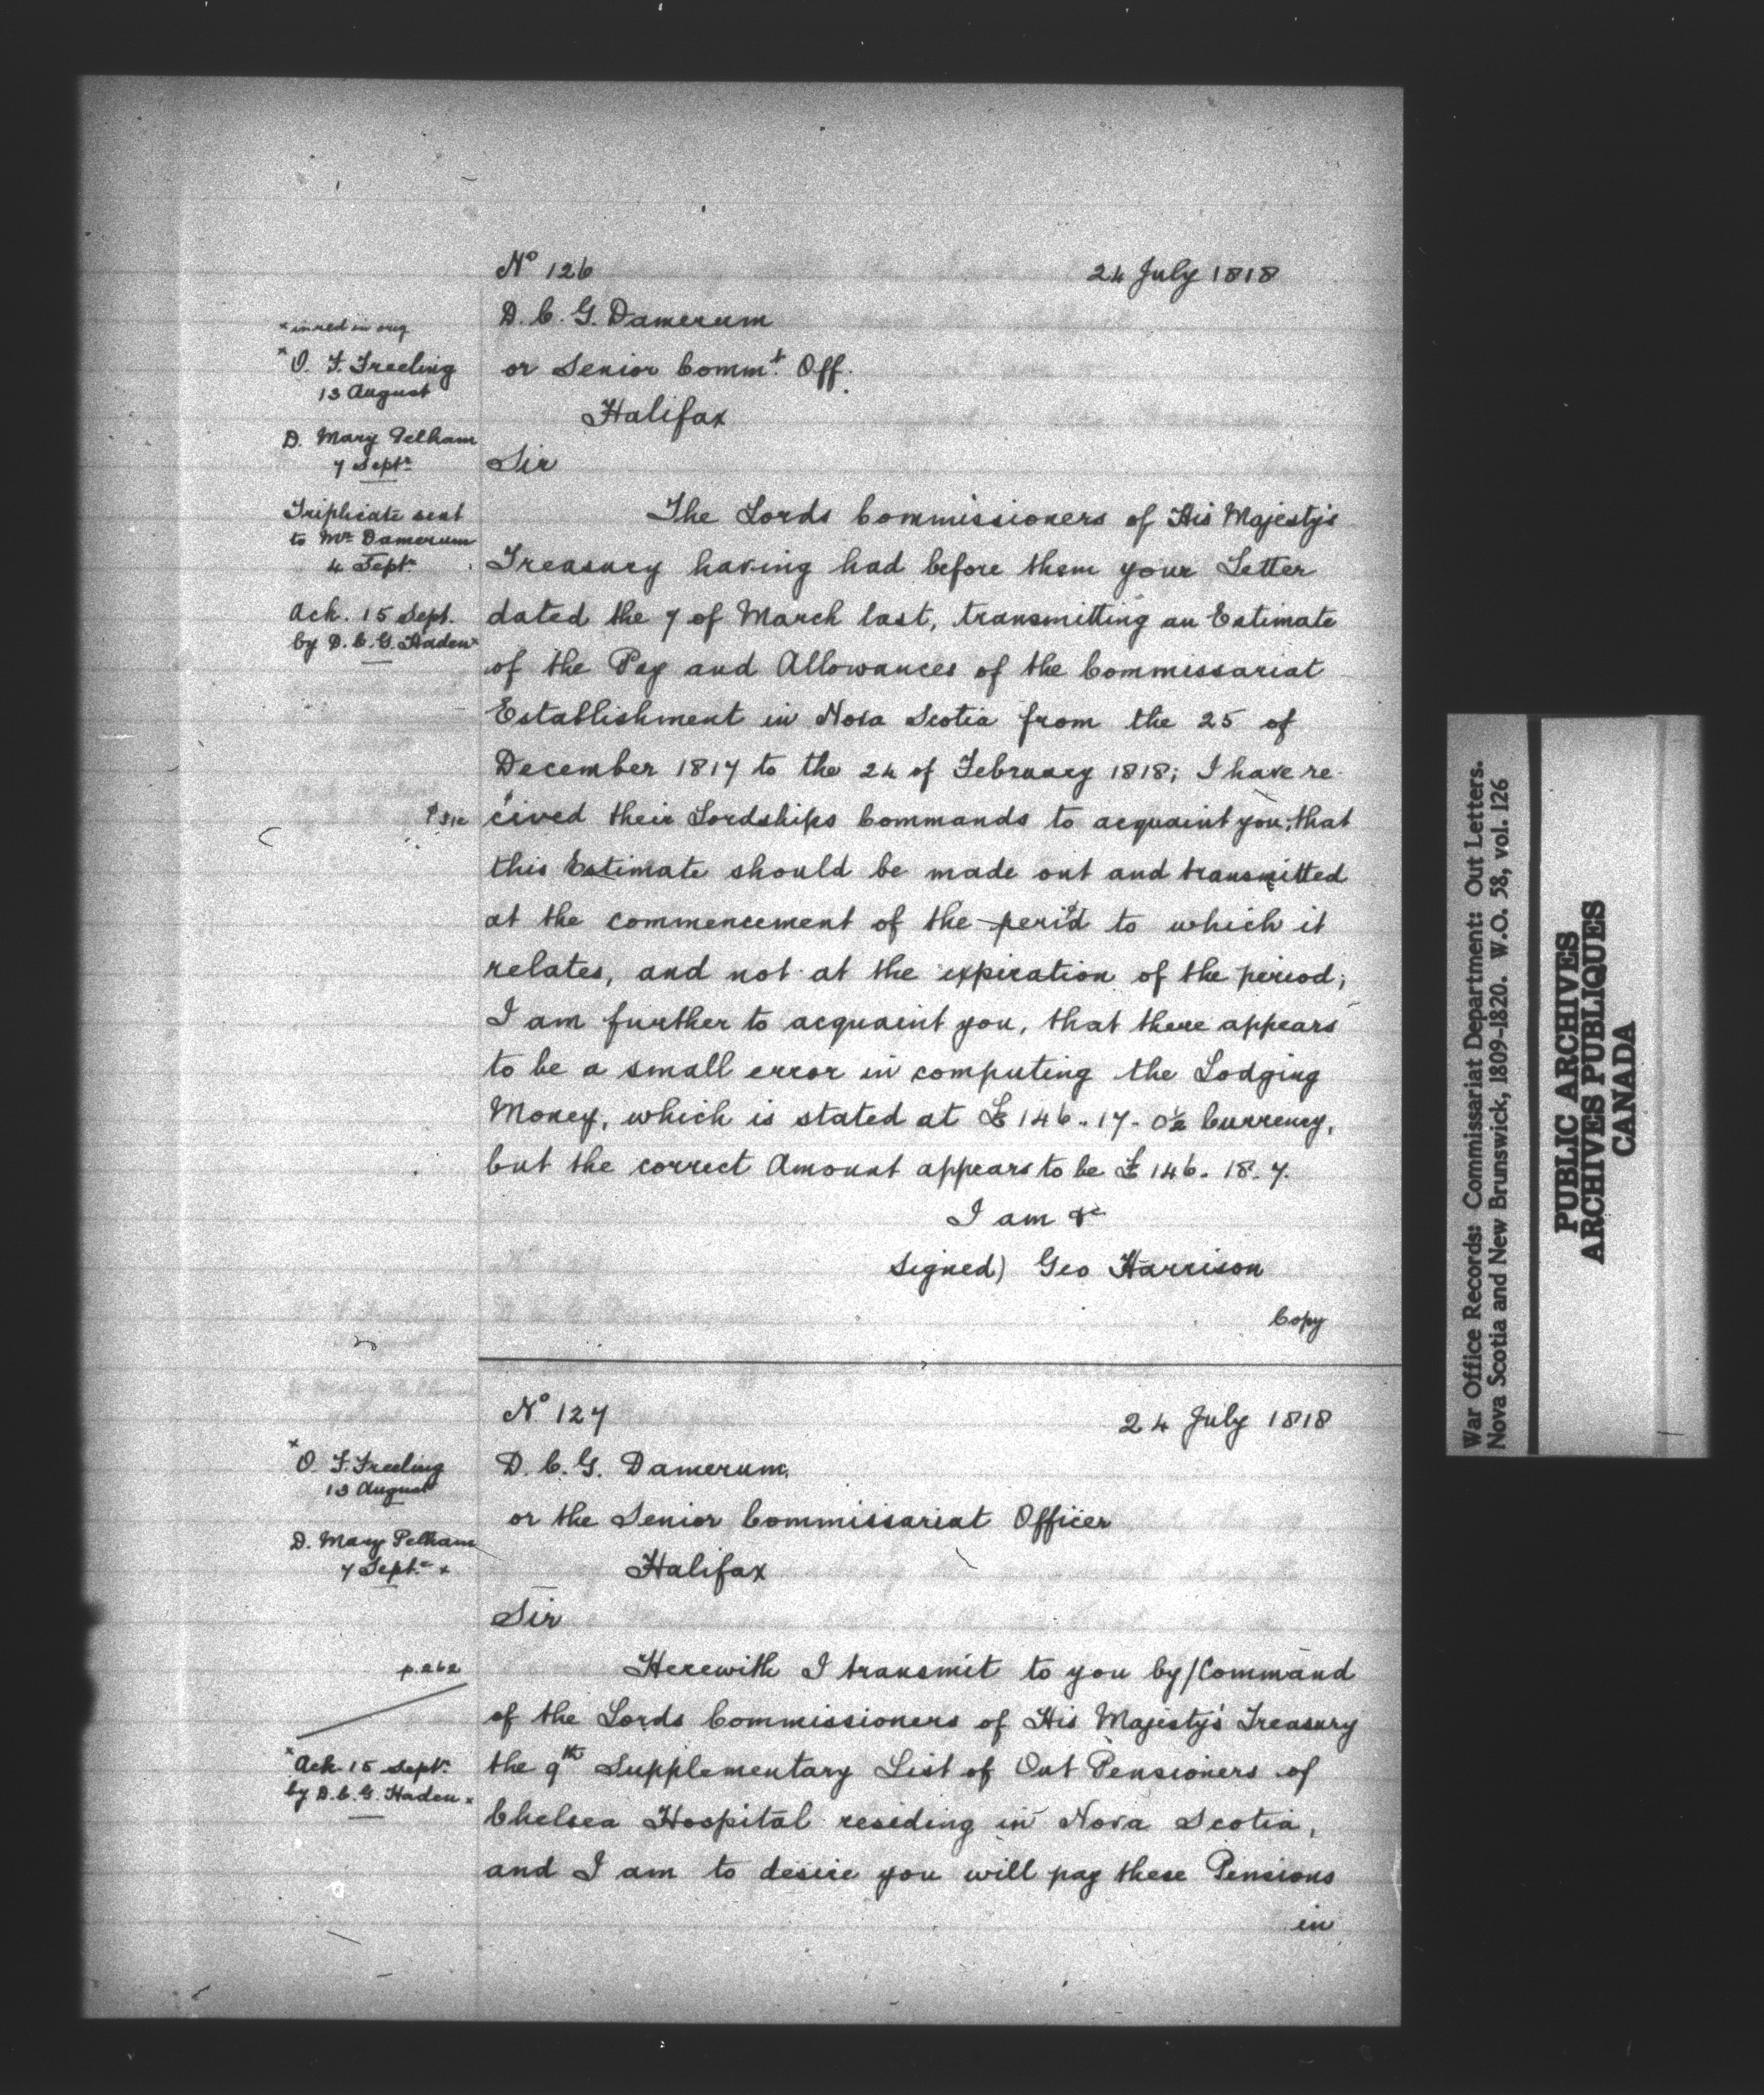 Nº 126
24 July 1818
D. C. G. Damerum
or Senior Commt. Off.
Halifax
* in red in orig
* O. F. Freeling
13 August
D. Mary Pelham
7 Septr
Triplicate sent
to Mr Damerum
4 Septr
Ack. 15 Sept.
by D. C. G. Haden *
Sir
The Lords Commissioners of His Majesty's
Treasury having had before them your Letter
dated the 7 of March last, transmitting an Estimate
of the Pay and Allowances of the Commissariat
Establishment in Nova Scotia from the 25 of
December 1817 to the 24 of February 1818; I have re-
? sic
cived their Lordships Commands to acquaint you, that
this Estimate should be made out and transmitted
at the commencement of the period to which it
relates, and not at the expiration of the period;
I am further to acquaint you, that there appears
to be a small error in computing the Lodging
Money, which is stated at £146-17-0½ Currency,
but the correct Amount appears to be £146. 18. 7.
I am &c
Signed) Geo Harrison
Copy
Nº 127
24 July 1818
D. C. G. Damerum
or the Senior Commissariat Officer
Halifax
* O. F. Freeling
13 August
D. Mary Pelham
7 Septr *
Sir
p. 262
Herewith I transmit to you by Command
of the Lords Commissioners of His Majesty's Treasury
the 9th Supplementary List of Out Pensioners of
Chelsea Hospital residing in Nova Scotia,
and I am to desire you will pay these Pensions
in
* Ack 15 Septr
by D. C. G. Haden *
War Office Records: Commissariat Department: Out Letters.
Nova Scotia and New Brunswick, 1809-1820. W.O. 58, vol. 126
PUBLIC ARCHIVES
ARCHIVES PUBLIQUES
CANADA